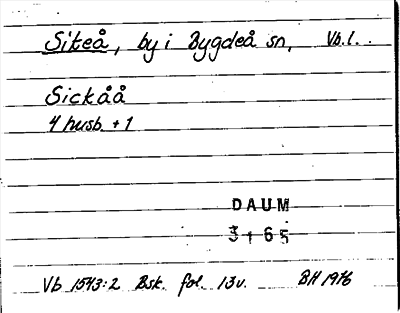 Sikeå, by i Bygdeå sn, Vb.l.
Sickåå
4 husb. + 1
DAUM
3165
Vb 1543:2 Bsk. fol. 13v. BH 1976